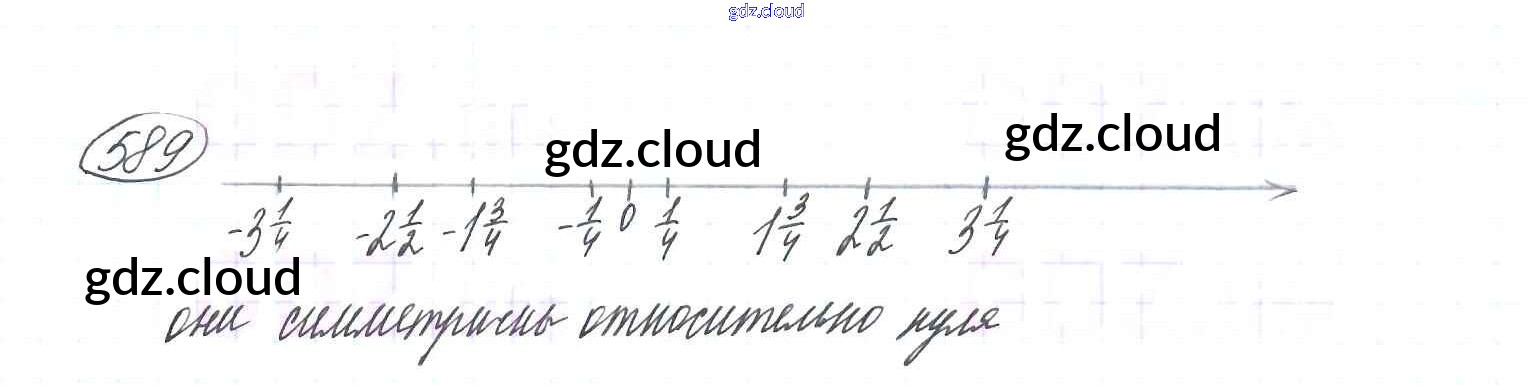 gdz.cloud
589
gdz.cloud gdz.cloud
-3 1/4 -2 1/2 -1 3/4 -1/4 0 1/4 1 3/4 2 1/2 3 1/4
gdz.cloud
они симметричны относительно нуля